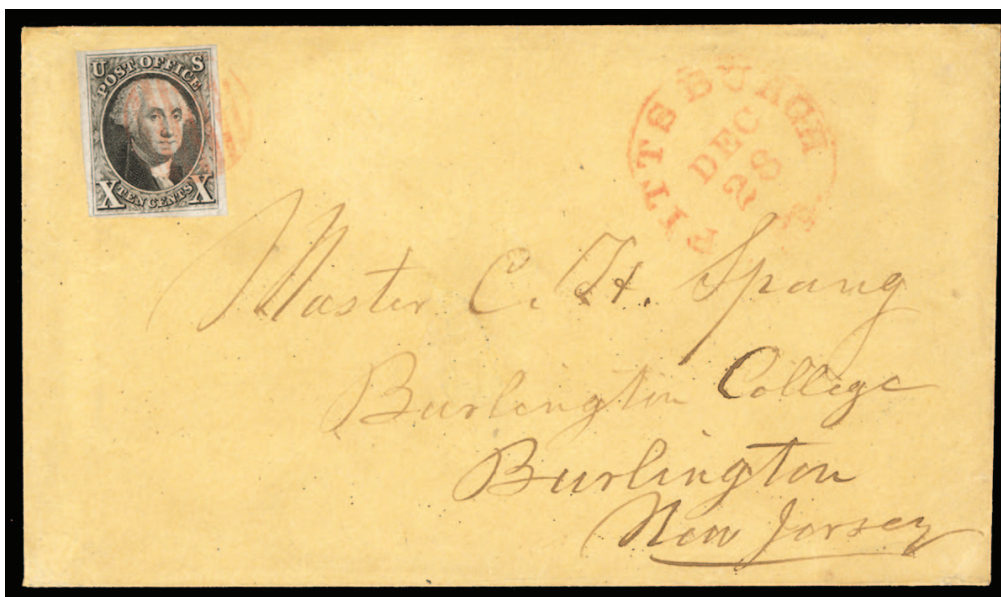 U S
POST OFFICE
X TEN CENTS X
PITTSBURGH
DEC
28
Master C. H. Spang
Burlington College
Burlington
New Jersey